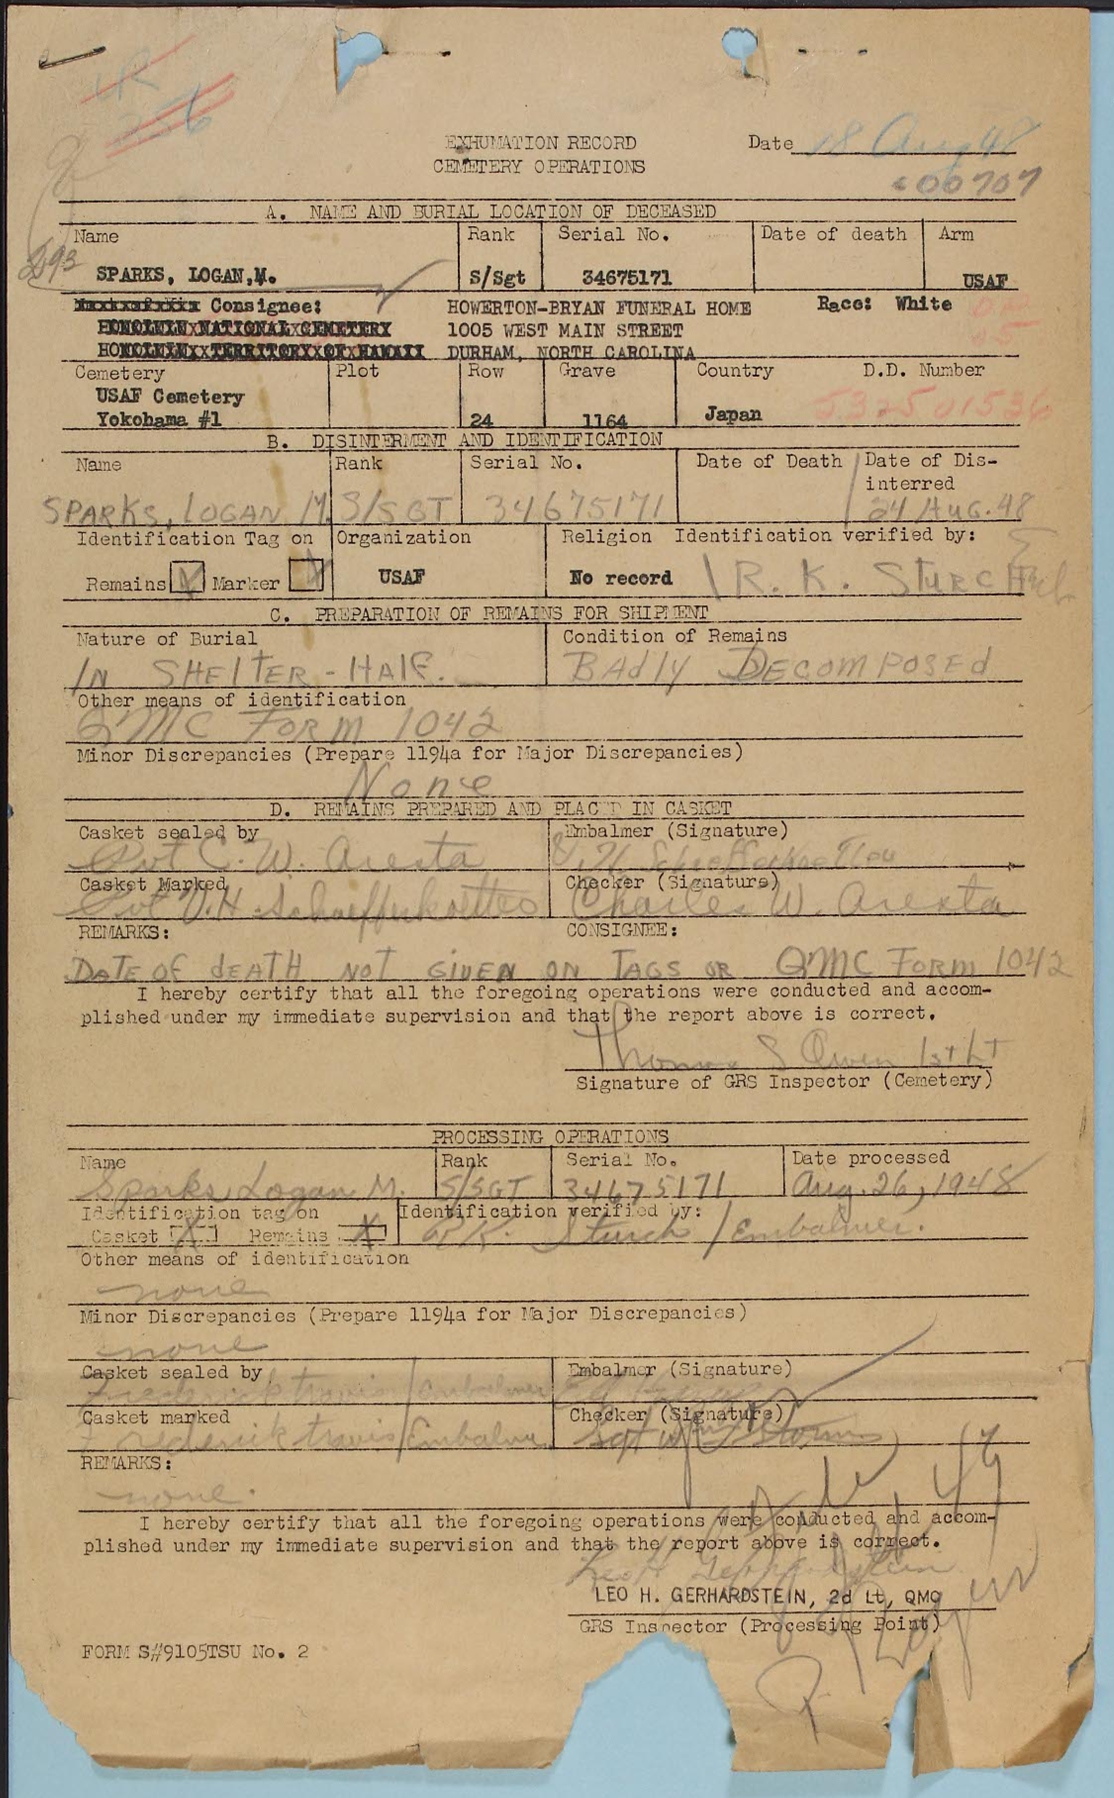 LR
256
EXHUMATION RECORD
CEMETERY OPERATIONS
Date 18 Aug 48
600707
A. NAME AND BURIAL LOCATION OF DECEASED
Name Rank Serial No. Date of death Arm
SPARKS, LOGAN,M. S/Sgt 34675171 USAF
Consignee: HOWERTON-BRYAN FUNERAL HOME Race: White
HONOLULU NATIONAL CEMETERY 1005 WEST MAIN STREET
HONOLULU TERRITORY OF HAWAII DURHAM, NORTH CAROLINA
Cemetery Plot Row Grave Country D.D. Number
USAF Cemetery
Yokohama #1 24 1164 Japan 532501536
B. DISINTERMENT AND IDENTIFICATION
Name Rank Serial No. Date of Death Date of Dis-
interred
SPARKS, LOGAN M. S/SGT 34675171 24 AUG. 48
Identification Tag on Organization Religion Identification verified by:
Remains X Marker X USAF No record R. K. STURCH
C. PREPARATION OF REMAINS FOR SHIPMENT
Nature of Burial Condition of Remains
IN SHELTER-HALF. BADLY DECOMPOSED
Other means of identification
QMC FORM 1042
Minor Discrepancies (Prepare 1194a for Major Discrepancies)
None
D. REMAINS PREPARED AND PLACED IN CASKET
Casket sealed by Embalmer (Signature)
Pvt C. W. Aresta
Casket Marked Checker (Signature)
Pvt V.H. Charles W. Aresta
REMARKS: CONSIGNEE:
DATE OF DEATH NOT GIVEN ON TAGS OR QMC FORM 1042
I hereby certify that all the foregoing operations were conducted and accom-
plished under my immediate supervision and that the report above is correct.
Thomas S Owen 1st Lt
Signature of GRS Inspector (Cemetery)
PROCESSING OPERATIONS
Name Rank Serial No. Date processed
Sparks, Logan M. S/SGT 34675171 Aug. 26, 1948
Identification tag on Identification verified by:
Casket X Remains X R K. Sturch / Embalmer.
Other means of identification
none
Minor Discrepancies (Prepare 1194a for Major Discrepancies)
none
Casket sealed by Embalmer (Signature)
Frederick travis / Embalmer
Casket marked Checker (Signature)
Frederick travis / Embalmer Sgt
REMARKS:
none.
I hereby certify that all the foregoing operations were conducted and accom-
plished under my immediate supervision and that the report above is correct.
Leo H Gerhardstein
LEO H. GERHARDSTEIN, 2d Lt, QMC
GRS Inspector (Processing Point)
FORM S#9105TSU No. 2